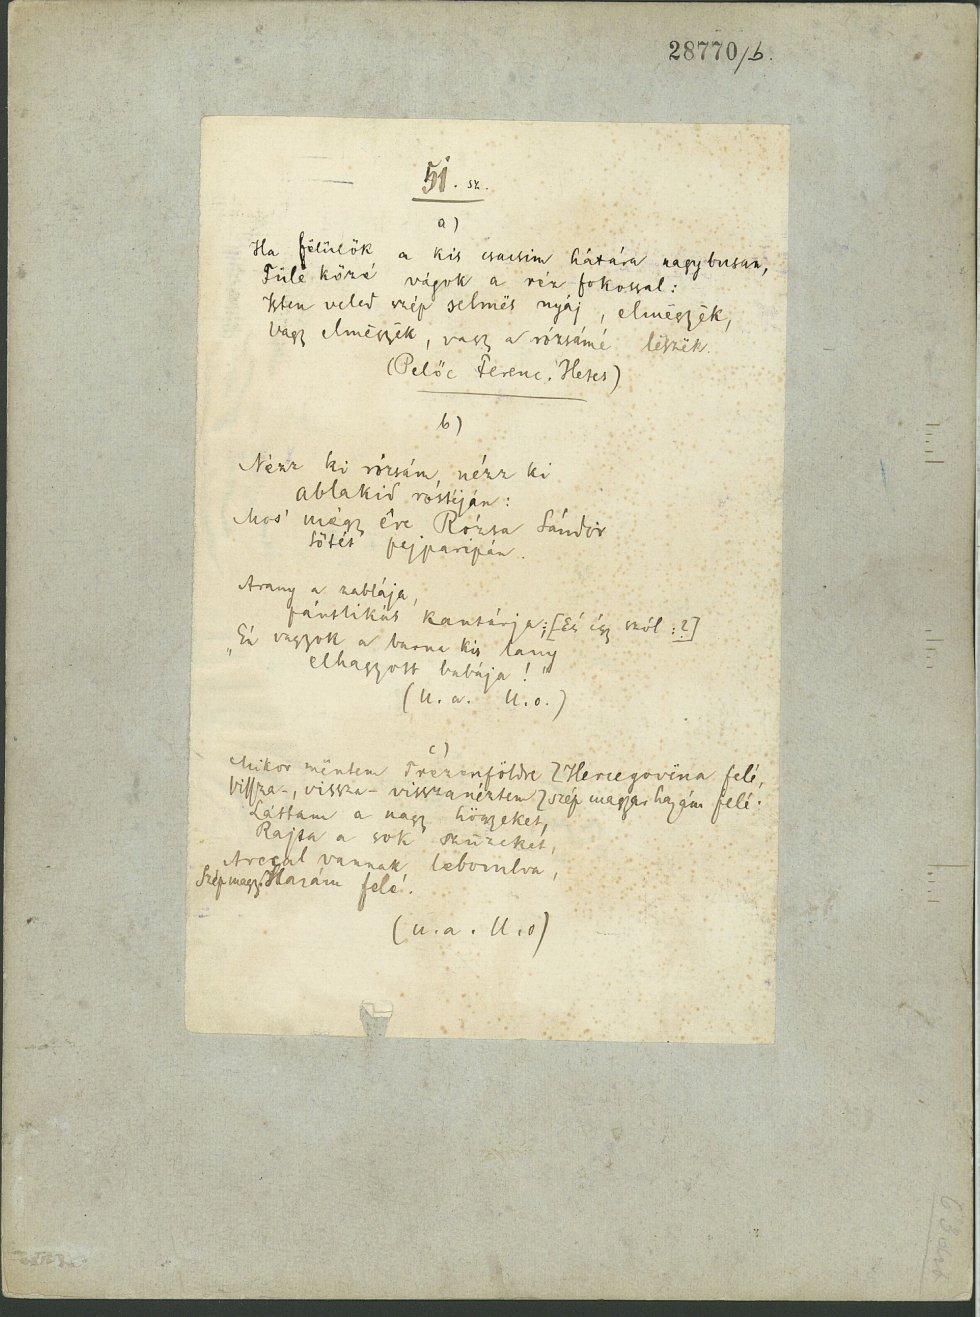 28770/b.
51. sz.
a)
Ha fëlülök a kis csacsim hátára nagybusan,
Füle közé vágok a réz fokossal:
Isten veled szép selmës nyáj, elmëgyëk,
Vagy elmëgyëk, vagy a rózsámé lëszëk.
(Pelőc Ferenc. Hetes)
b)
Nézz ki rózsám, nézz ki
ablakid rostéján:
Mos' mëgy ëre Rózsa Sándor
Sötét pejparipán.
Arany a zablája,
pántlikás kantárja; [És így szól: ?]
„Én vagyok a barna kis lany
elhagyott babája!"
(U. a. U. o.)
c)
Mikor mëntem Hercegovina felé,
Vissza-, vissza- visszanéztem szép magyar hazám felé.
Láttam a nagy högyeket,
Rajta a sok szűzeket,
Arccal vannak leborulva,
Szép magy. Hazám felé.
(u. a. U. o)